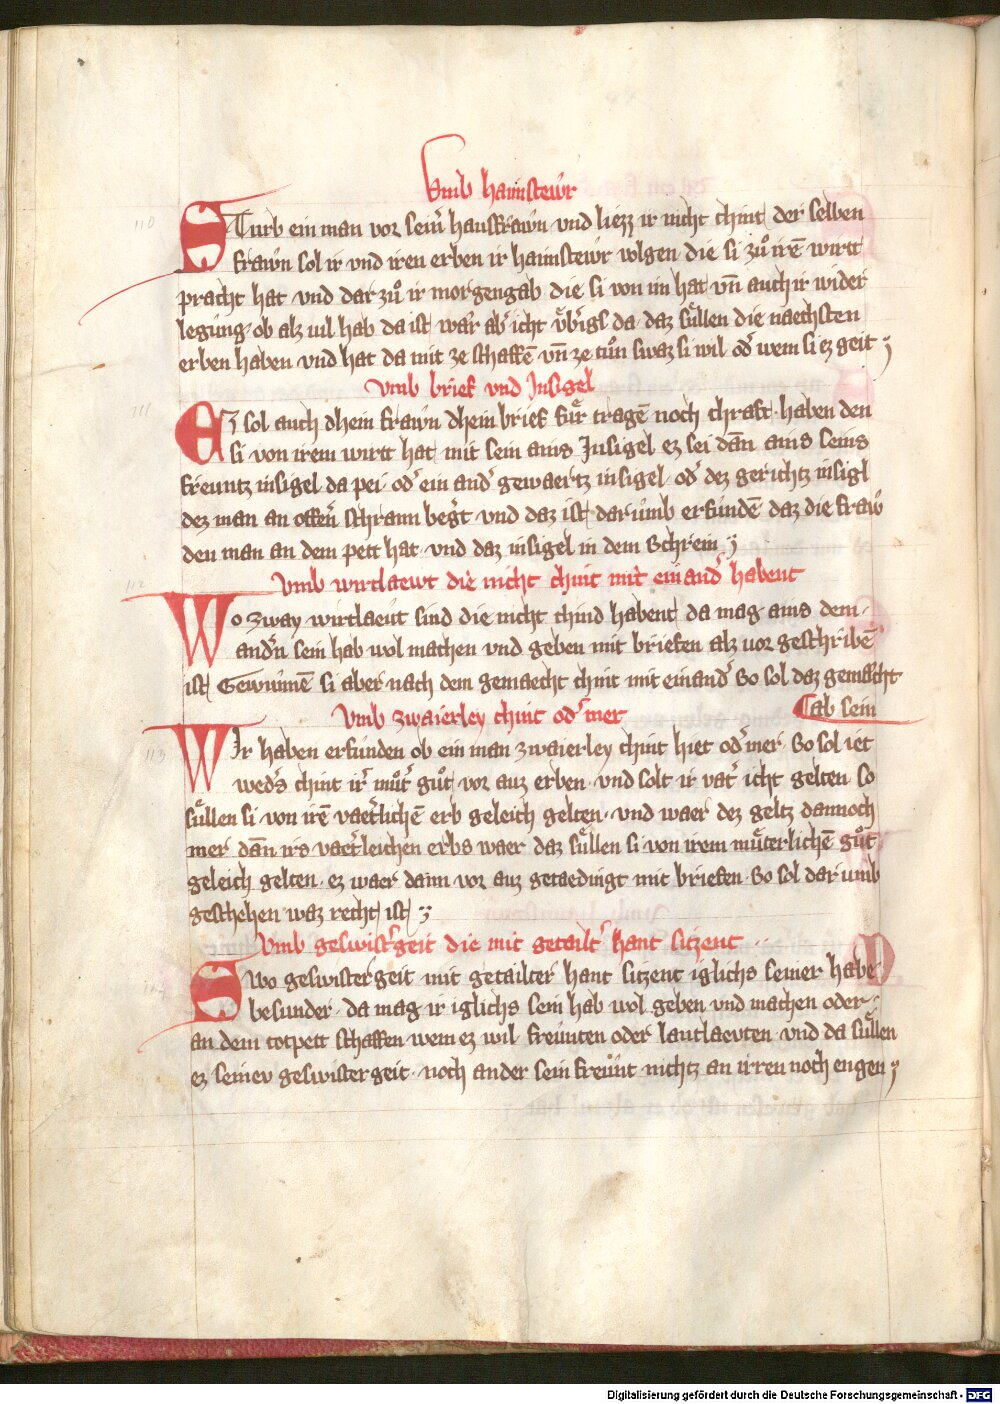 Vmb haimstewr
110 STurb ein man vor seinr hausfrawn vnd liezz ir nicht chint der selben
frawn sol ir vnd iren erben ir haimstewr volgen die si zuͦ irē wirtt
pracht hat vnd dar zuͦ ir morgengab die si von im hat vn̄ auch ir wider
legung · ob alz vil hab da ist wär ab̓ icht v̈brigs da · daz suͤllen die naechsten
erben haben vnd hat da mit ze schaffē vn̄ ze tuͦn swaz si wil od̓ wem si ez geit
Vmb brief vnd Jnsigel
111 EZ sol auch dhein frawn dhein brief fuͤr tragē noch chraft · haben den
si von irem wirtt hat mit sein ains Jnsigel ez sei dān ains seins
freuntz insigel da pei · od̓ ein and̓ gewaertz insigel · od̓ dez gerichtz insigl
dez man an offen̄ schrann beg̓t vnd daz ist dar vmb erfundē daz die fraw
den man an dem pett hat · vnd daz insigel in dem Schrein
112 Vmb wirtlaewt die nicht chint mit einand̓ habent
Wo zway wirtlaeut sind die nicht chind habent da mag ains dem ·
andn̓ sein hab wol machen vnd geben mit briefen alz vor geschribē
ist Gewunnē si aber nach dem gemaecht chint mit einand̓ So sol daz gemaͤcht
ab sein
Vmb zwaierley chint od̓ mer
113 WJr haben erfunden ob ein man zwaierley chint hiet od̓ mer · So sol iet
wed̓s chint ir̓ muͦt̓ guͦt vor auz erben · vnd solt ir vat̓ icht gelten · so
suͤllen si von irē vaet̓lichē erb geleich gelten · vnd waer dez geltz dannoch
mer dān irs vaet̓leichen erbs waer daz suͤllen si von irem muͤterlichē guͦt
geleich gelten · ez waer dann vor auz getaedingt mit briefen · So sol dar vmb
geschehen waz recht ist
Vmb geswist̓geit die mit getailt̓ hant sitzent
SWo geswistergeit mit getailter hant sitzent iglichs seiner habe
besunder · da mag ir iglichs sein hab wol geben vnd machen oder ·
an dem totpett schaffen wem ez wil freunten oder lantlaevten · vnd da suͤllen
ez seinev geswistergeit · noch ander sein freunt nichtz an irren noch engen
Digitalisierung gefördert durch die Deutsche Forschungsgemeinschaft - DFG